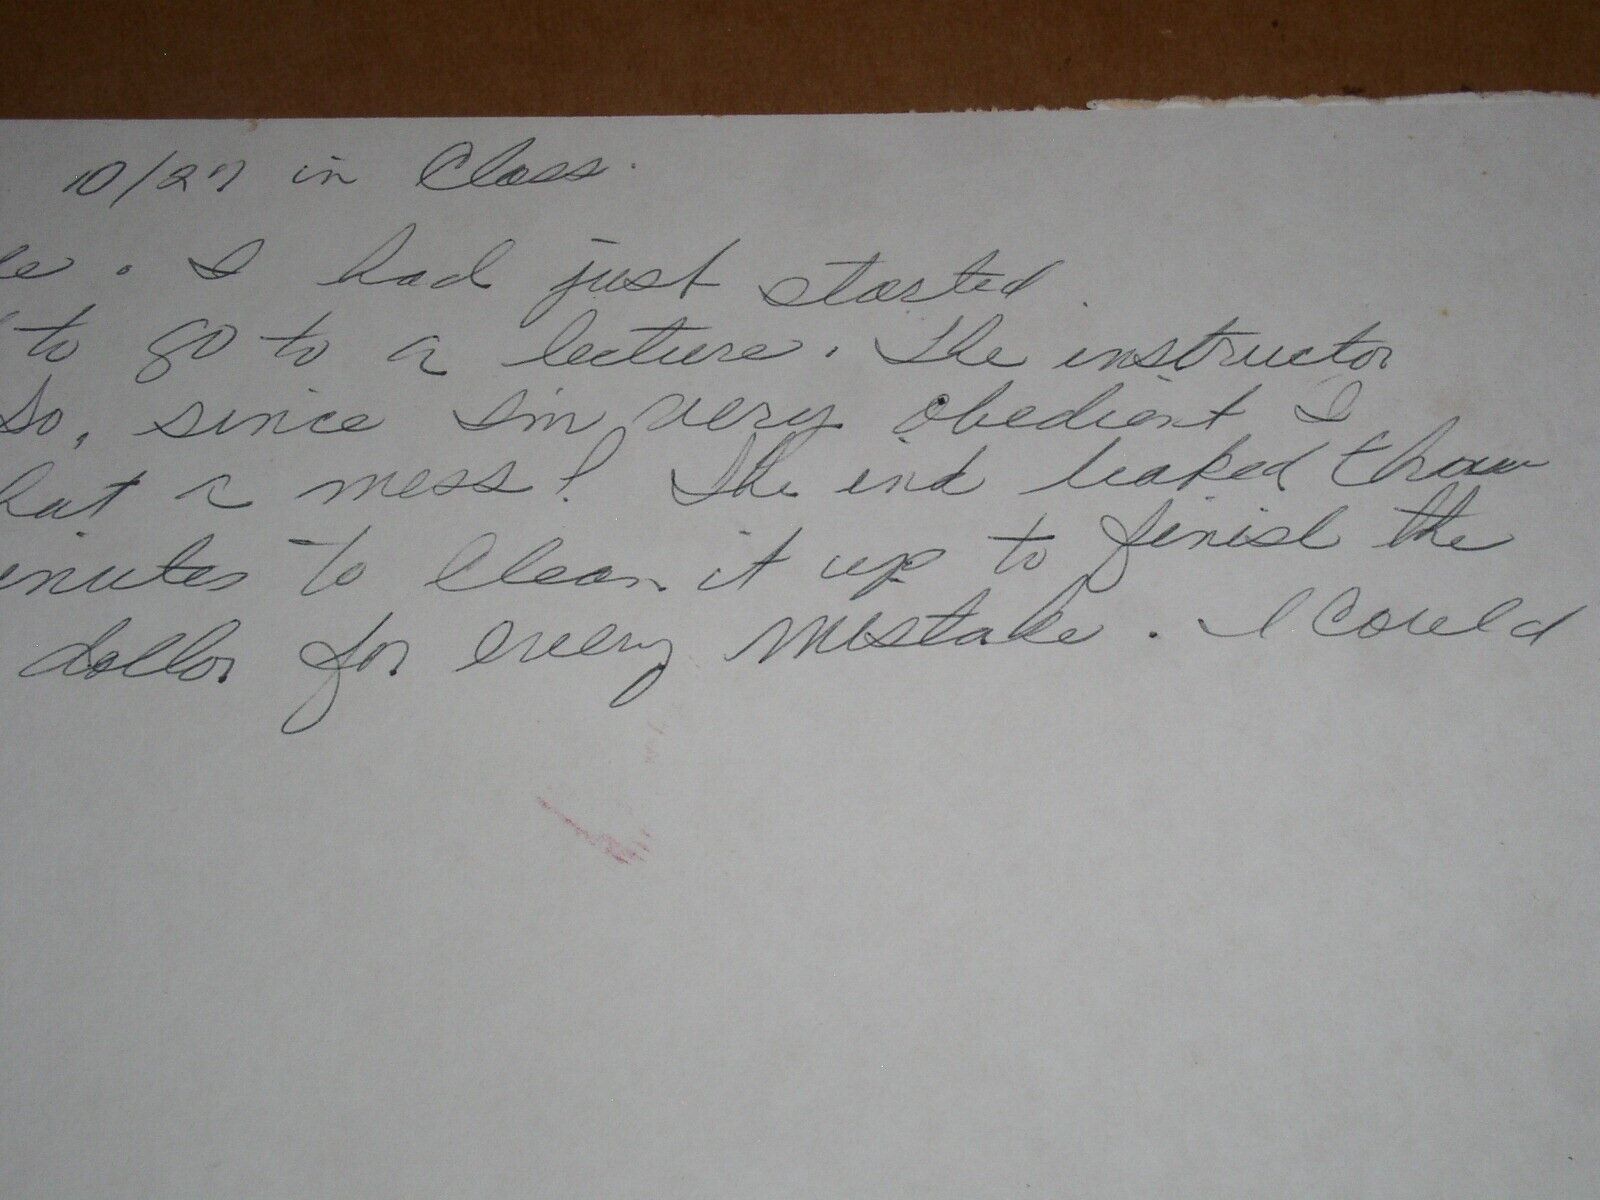 10/27 in Class.
le. I had just started
to go to a lecture. The instructor
So, since I'm very obedient I
hat a mess! The ink leaked throu
inutes to clean it up to finish the
dollar for every mistake. I could